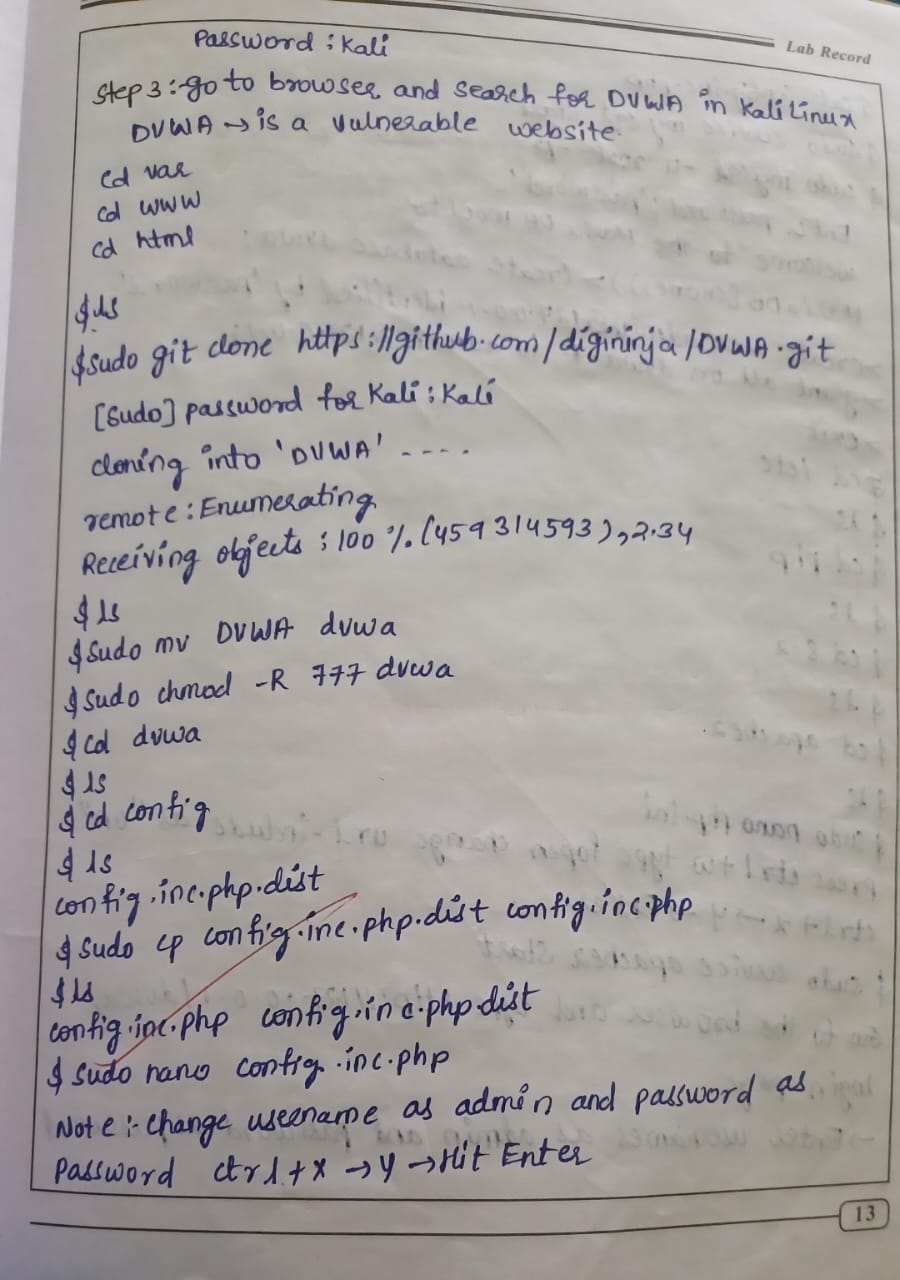 Lab Record
Password : Kali
Step 3 :- go to browser and search for DVWA in Kali Linux
DVWA → is a vulnerable website.
cd var
cd www
cd html
$ ls
$ sudo git clone https://github.com/digininja/DVWA.git
[Sudo] password for Kali : Kali
cloning into 'DVWA' ....
remote : Enumerating
Receiving objects : 100 %. (4593/4593), 2.34
$ ls
$ sudo mv DVWA dvwa
$ sudo chmod -R 777 dvwa
$ cd dvwa
$ ls
$ cd config
$ ls
config.inc.php.dist
$ sudo cp config.inc.php.dist config.inc.php
$ ls
config.inc.php config.inc.php.dist
$ sudo nano config.inc.php
Note :- change username as admin and password as
Password ctrl + x → y → Hit Enter
13